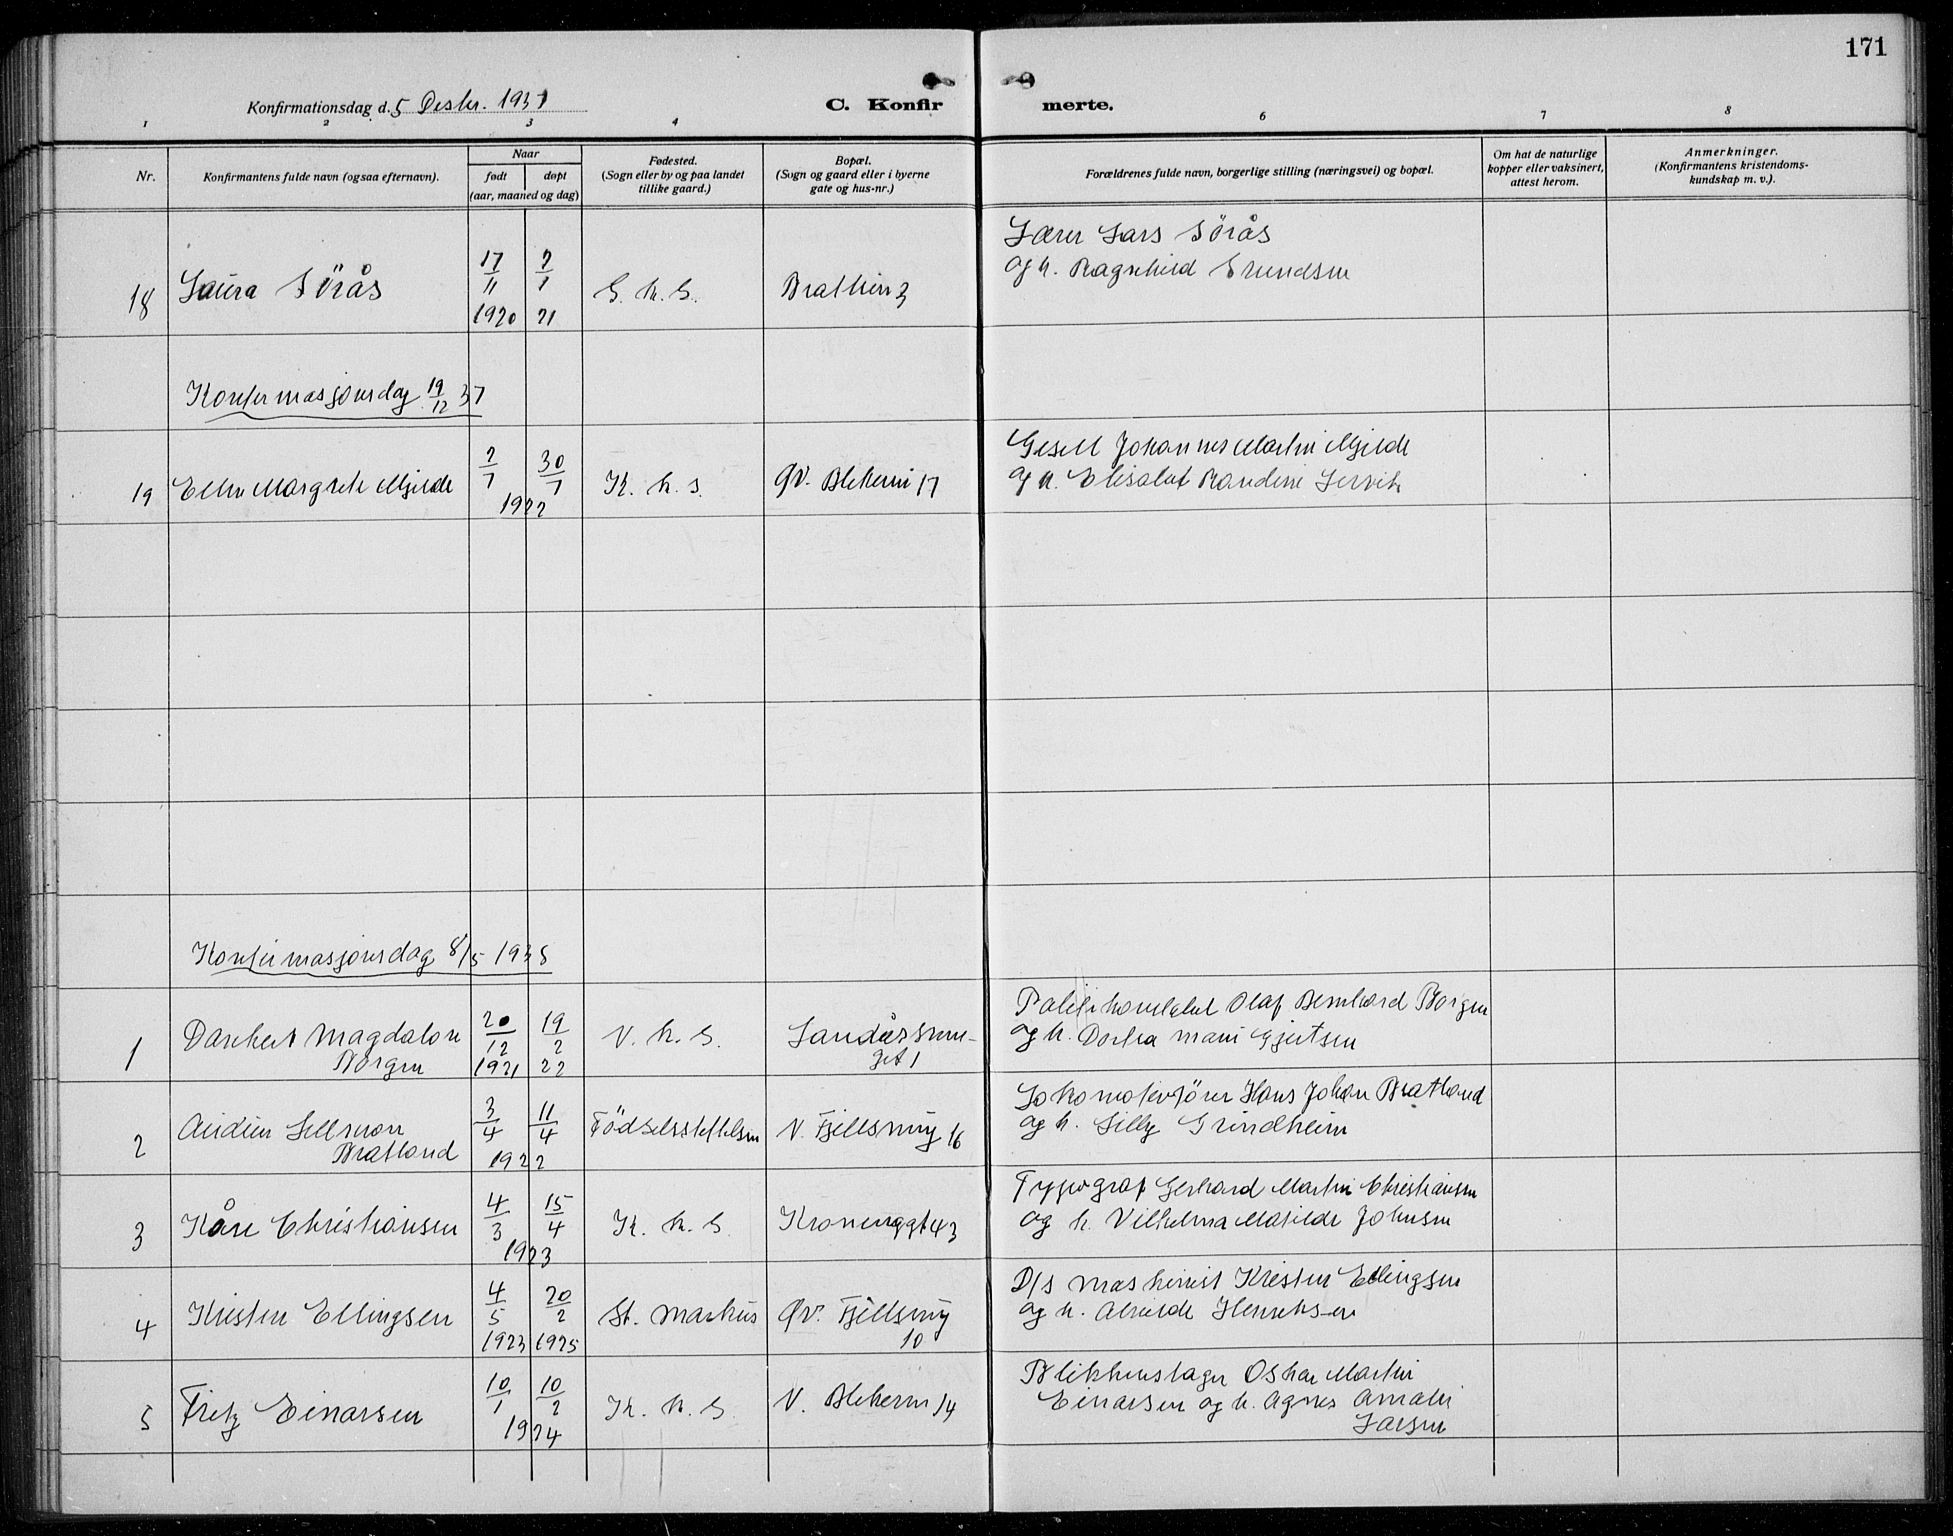 171
Konfirmationsdag d. 5 Desbr. 1937
C. Konfirmerte.
1 2 3 4 6 7 8
Nr.
Konfirmantens fulde navn (ogsaa efternavn).
Naar
født døpt
(aar, maaned og dag)
Fødested.
(Sogn eller by og paa landet
tillike gaard.)
Bopæl.
(Sogn og gaard eller i byerne
gate og hus-nr.)
Forældrenes fulde navn, borgerlige stilling (næringsvei) og bopæl.
Om hat de naturlige
kopper eller vaksinert,
attest herom.
Anmerkninger.
(Konfirmantens kristendoms-
kundskap m. v.).
18 Laura Sörås 17/11 1920 21 Bratlien 3
Lærer Lars Sörås
og h. Ragnhild
Konfirmasjonsdag 19/12 37
19 Margrete Mjelde 30/7 1922 K. k. s. Øv. Blekevei 17
Johannes Martin Mjelde
og h.
Konfirmasjonsdag 8/5 1938
1 Magdalon
Borgen 20/12 1921 19/2 22 Landåssvin-
get 1
Olaf Bernhard Borgen
og h. Gjertsen
2 Bratland 3/4 11/4 1922 Födselsstiftelsen V. Fjellsmug 16
Lokomotivförer Hans Johan Bratland
og h. Lilly Grindheim
3 Kåre Christiansen 4/3 15/4 1923 K. k. S. 43
Typograf Gerhard Martin Christiansen
og h. Vilhelma Matilde Johnsen
4 Ellingsen 4/5 1923 20/2 1925 St. Markus Øv. Fjellsmug
10
D/s maskinist Ellingsen
og h. Henriksen
5 Fritz Einarsen 10/1 10/2 1924 K. k. S. V. Blekevei 14
Blikkenslager Oskar Martin
Einarsen og h. Agnes Amalie
Larsen